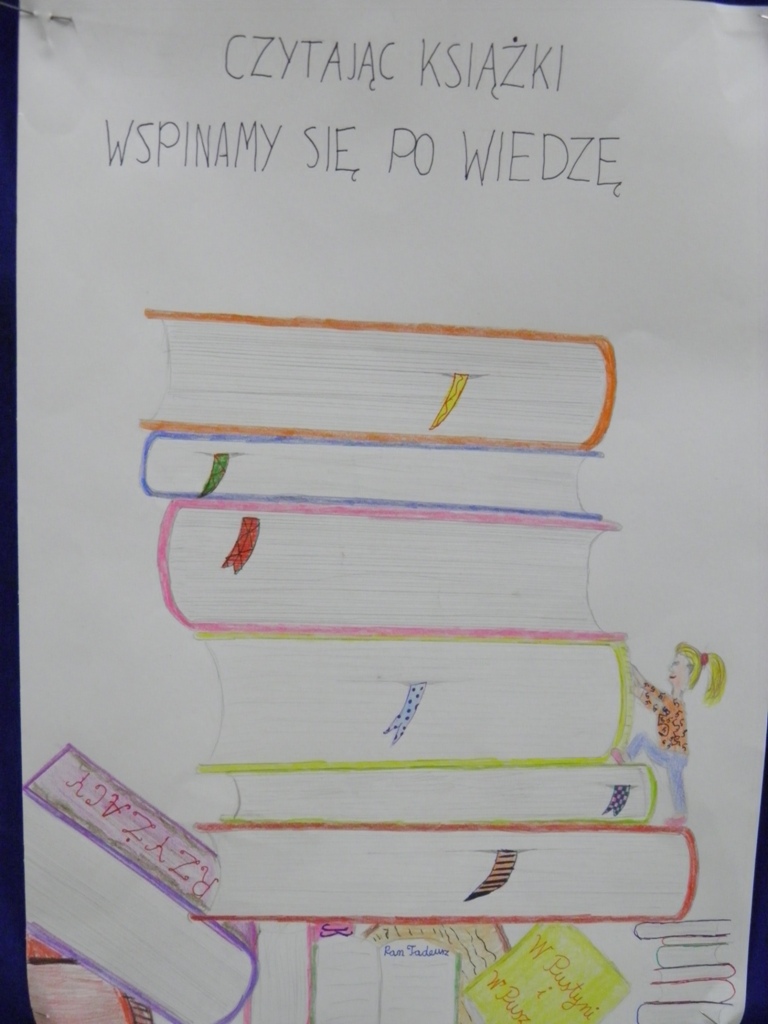 CZYTAJĄC KSIĄŻKI
WSPINAMY SIĘ PO WIEDZĘ
RZYŻACY
Pan Tadeusz
W Pustyni
i
W Pusz